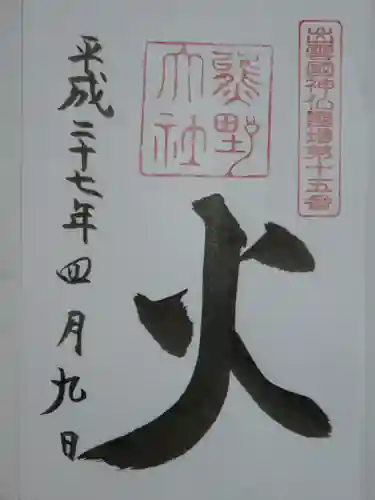 出雲國神仏霊場第十五番
熊野大社
火
平成二十七年四月九日